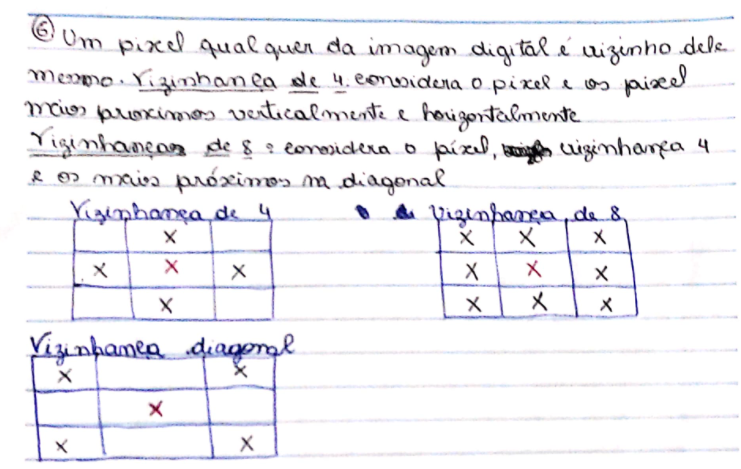 ⑥ Um pixel qualquer da imagem digital é vizinho dele
mesmo. Vizinhança de 4. considera o pixel e os pixel
mais proximos verticalmente e horizontalmente
Vizinhança de 8: considera o píxel, vizinhança 4
e os mais próximos na diagonal
Vizinhança de 4 Vizinhança de 8
X X X X
X X X X X X
X X X X
Vizinhança diagonal
X X
X
X X